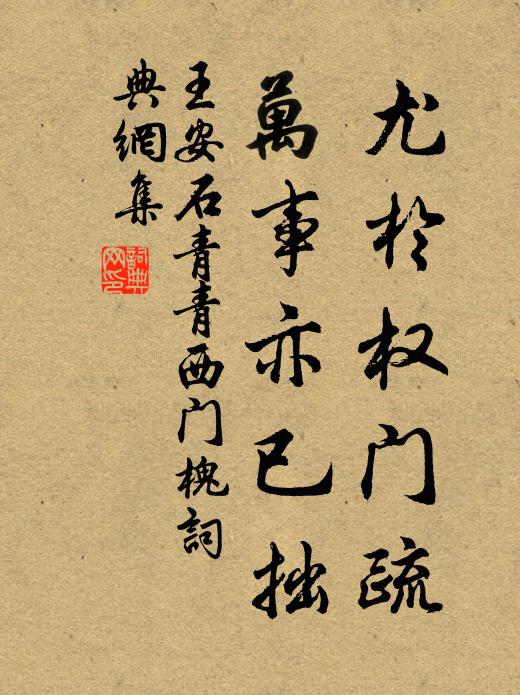 尤於权门疏
萬事亦已拙
王安石青青西门槐詞
典網集
詞典
网印